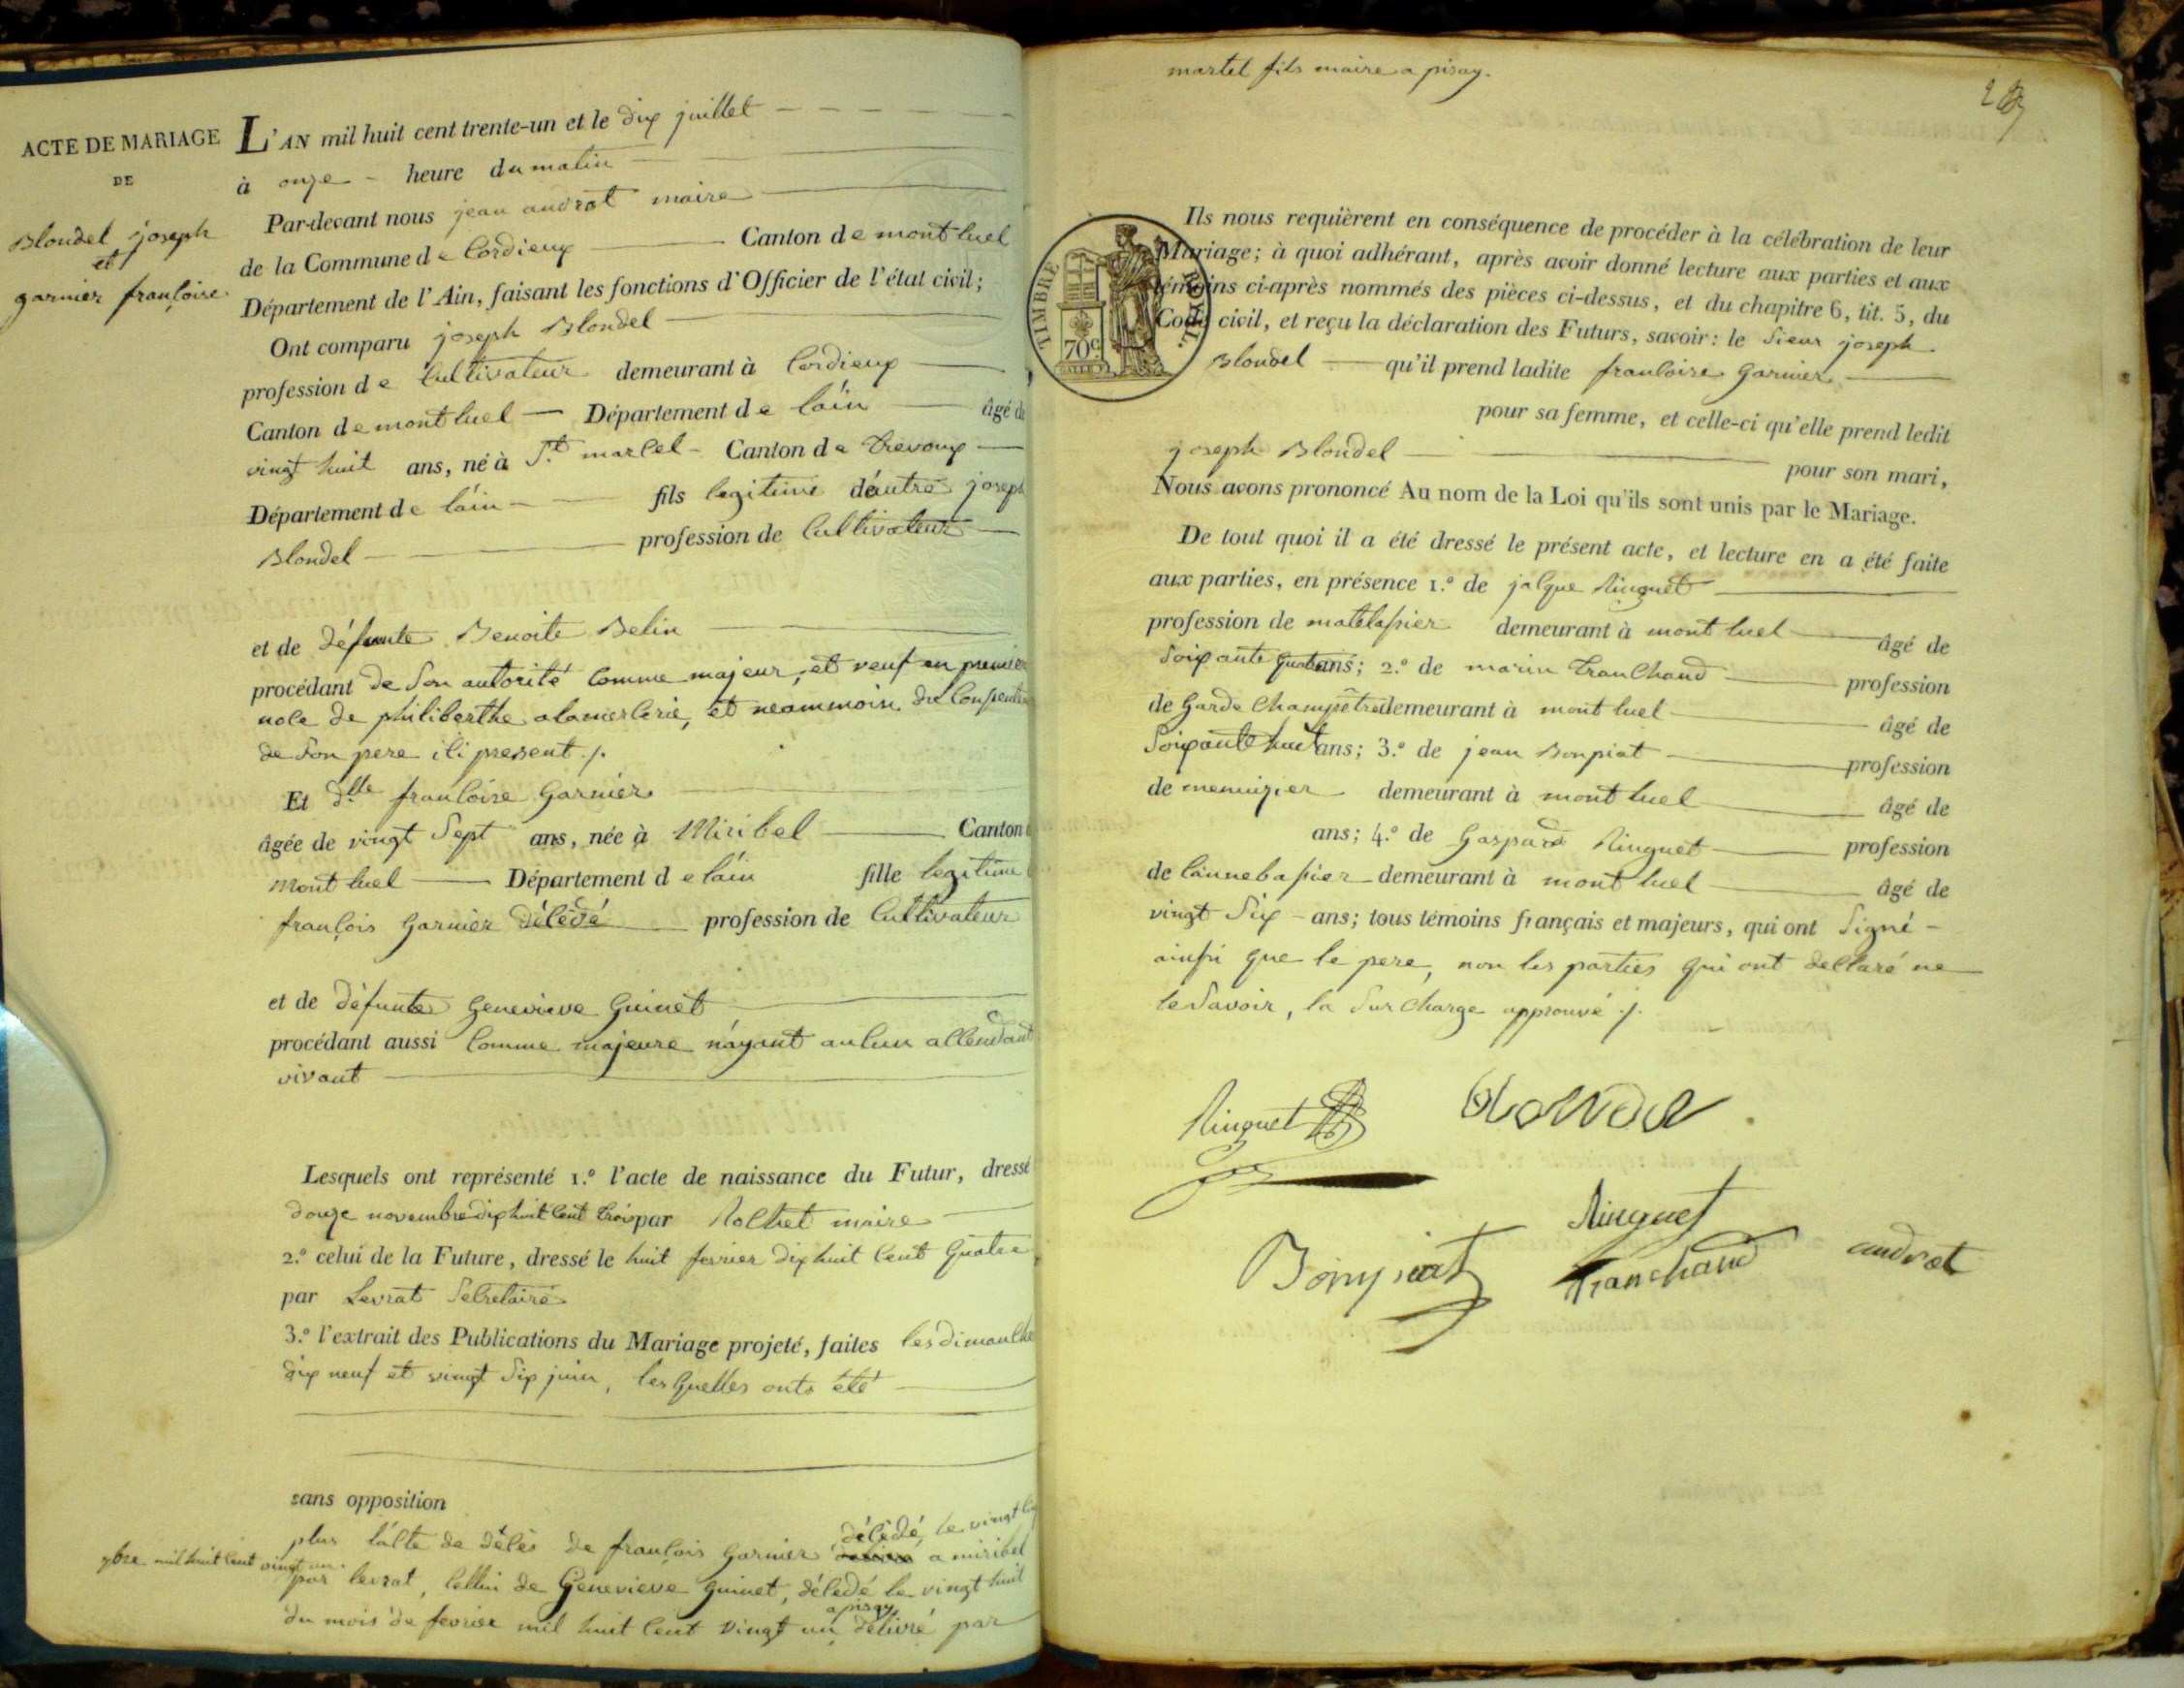 ACTE DE MARIAGE
DE
Blondel joseph
et
garnier françoise
L'AN mil huit cent trente-un et le dix juillet
à onze heure du matin
Par-devant nous jean audrat maire
de la Commune de Cordieux Canton de montluel
Département de l'Ain, faisant les fonctions d'Officier de l'état civil;
Ont comparu joseph Blondel
profession de Cultivateur demeurant à Cordieux
Canton de montluel Département de lain âgé de
vingt huit ans, né à St. marcel Canton de trevoux
Département de láin fils legitime d'autre joseph
Blondel profession de Cultivateur
et de défunte Benoite Belin
procédant de son autorité comme majeur, et veuf en premier
noce de philiberthe et neammoins du
de son pere ici present ./.
Et dlle francoise Garnier
âgée de vingt Sept ans, née à Miribel Canton
Montluel Département de láin fille legitime
françois Garnier décédé profession de Cultivateur
et de défunte Genevieve Guinet
procédant aussi Comme majeure n'ayant aucun
vivant
Lesquels ont représenté 1.º l'acte de naissance du Futur, dressé
douze novembre dix huit cent trois par Rolket maire
2.º celui de la Future, dressé le huit fevrier dix huit cent Quatre
par Levrat Secretaire
3.º l'extrait des Publications du Mariage projeté, faites les dimanche
dix neuf et vingt Six juin, les quelles onts été
sans opposition
plus l'acte de décès de françois Garnier décédé, le vingt
a miribel
9bre mil huit cent vingt un
par levrat, cellui de Genevieve guinet, décedé le vingt huit
a pisay
du mois de fevrier mil huit cent vingt un délivré par
martel fils maire a pisay.
Ils nous requièrent en conséquence de procéder à la célébration de leur
Mariage; à quoi adhérant, après avoir donné lecture aux parties et aux
témoins ci-après nommés des pièces ci-dessus, et du chapitre 6, tit. 5, du
Code civil, et reçu la déclaration des Futurs, savoir: le Sieur joseph
TIMBRE ROYAL
70c
Blondel qu'il prend ladite francoise Garnier
pour sa femme, et celle-ci qu'elle prend ledit
joseph Blondel pour son mari,
Nous avons prononcé Au nom de la Loi qu'ils sont unis par le Mariage.
De tout quoi il a été dressé le présent acte, et lecture en a été faite
aux parties, en présence 1.º de jacque Ringuet
profession de matelassier demeurant à montluel âgé de
Soixante quatre ans; 2.º de marin tranchand profession
de Garde Champêtre demeurant à montluel âgé de
Soixante huit ans; 3.º de jean Bonpiat profession
de menuizier demeurant à montluel âgé de
ans; 4.º de Gaspard Ringuet profession
de cannebassier demeurant à montluel âgé de
vingt Six ans; tous témoins français et majeurs, qui ont Signé
ainsi que le pere, non les parties qui ont declaré ne
le Savoir, la Surcharge approuvé ./.
Ringuet Blondel
Ringuet
Bonpiat Tranchand audrat